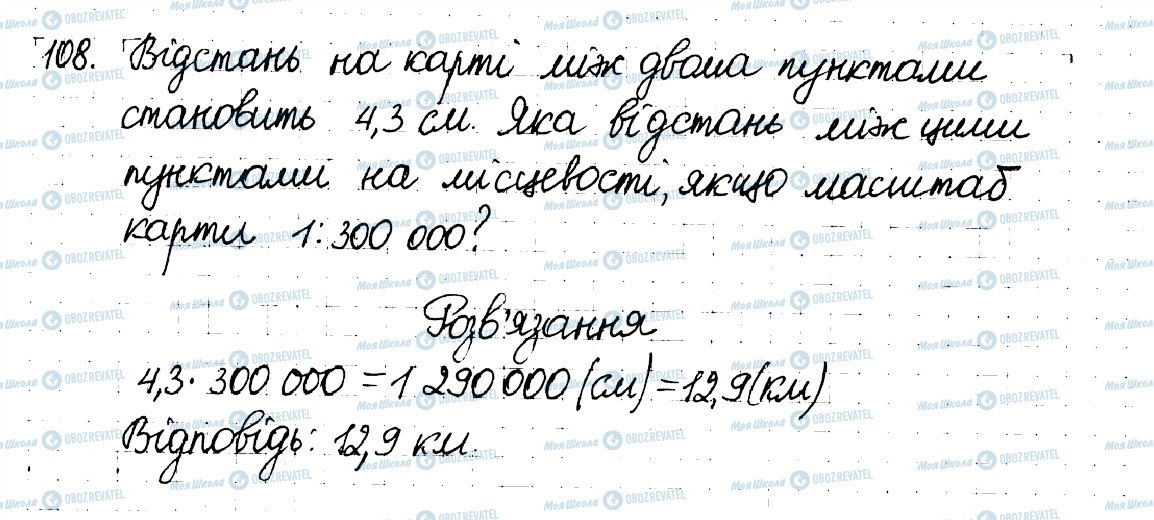 108. Відстань на карті між двома пунктами
становить 4,3 см. Яка відстань між цими
пунктами на місцевості, якщо масштаб
карти 1:300 000?
Розв'язання
4,3·300 000=1 290 000 (см)=12,9(км)
Відповідь: 12,9 км.